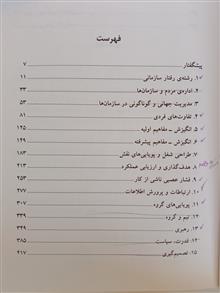 فهرست
پیشگفتار ۷
۱. رشته‌ی رفتار سازمانی ۱۱
۲. اداره‌ی مردم و سازمان‌ها ۳۳
۳. مدیریت جهانی و گوناگونی در سازمان‌ها ۵۳
۴. تفاوت‌های فردی ۸۱
۵. انگیزش - مفاهیم اولیه ۱۲۵
۶. انگیزش - مفاهیم پیشرفته ۱۴۹
۷. طراحی شغل و پویایی‌های نقش ۱۸۳
۸. هدف‌گذاری و ارزیابی عملکرد ۲۱۳
۹. فشار عصبی ناشی از کار ۲۵۳
۱۰. ارتباطات و پرورش اطلاعات ۲۷۷
۱۱. پویایی‌های گروه ۳۰۷
۱۲. تیم و گروه ۳۳۹
۱۳. رهبری ۳۴۹
۱۴. قدرت، سیاست ۳۸۵
۱۵. تصمیم‌گیری ۴۱۷